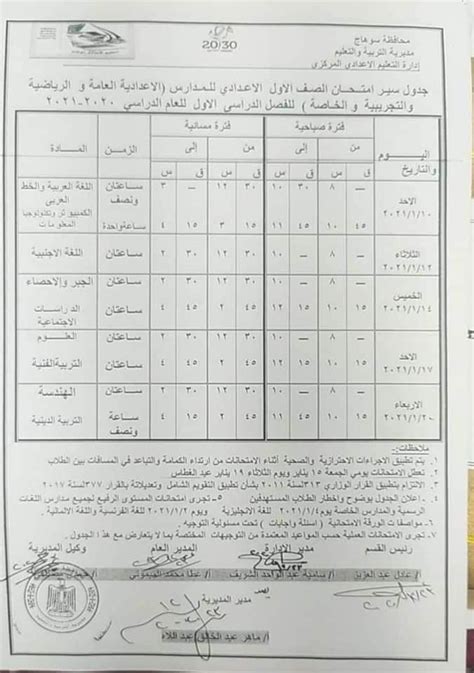 محافظة سوهاج
مديرية التربية والتعليم
إدارة التعليم الإعدادي المركزي
20/30
جدول سير امتحان الصف الاول الاعدادي للمدارس (الاعدادية العامة و الرياضية
والتجريبية و الخاصة ) للفصل الدراسي الاول للعام الدراسي ٢٠٢٠-٢٠٢١
اليوم والتاريخ فترة صباحية فترة مسائية الزمن المادة
من إلى من إلى
ق س ق س ق س ق س
الاحد ٢٠٢١/١/١٠ — ٨ ٣٠ ١٠ ٣٠ ١٢ — ٣ ساعتان ونصف اللغة العربية والخط العربى
٤٥ ١٠ ٤٥ ١١ ١٥ ٣ ١٥ ٤ ساعة واحدة الكمبيوتر وتكنولوجيا المعلومات
الثلاثاء ٢٠٢١/١/١٢ — ٨ — ١٠ ٣٠ ١٢ ٣٠ ٢ ساعتان اللغة الاجنبية
الخميس ٢٠٢١/١/١٤ — ٨ — ١٠ ٣٠ ١٢ ٣٠ ٢ ساعتان الجبر والاحصاء
١٥ ١٠ ١٥ ١٢ ٤٥ ٢ ٤٥ ٤ ساعتان الدراسات الاجتماعية
الاحد ٢٠٢١/١/١٧ — ٨ — ١٠ ٣٠ ١٢ ٣٠ ٢ ساعتان العلوم
١٥ ١٠ ١٥ ١٢ ٤٥ ٢ ٤٥ ٤ ساعتان التربية الفنية
الاربعاء ٢٠٢١/١/٢٠ — ٨ — ١٠ ٣٠ ١٢ ٣٠ ٢ ساعتان الهندسة
١٥ ١٠ ٤٥ ١١ ٤٥ ٢ ١٥ ٤ ساعة ونصف التربية الدينية
ملاحظات:
١. يتم تطبيق الاجراءات الاحترازية والصحية أثناء الامتحانات من ارتداء الكمامة والتباعد في المسافات بين الطلاب
٢. تعطل الامتحانات يومي الجمعة ١٥ يناير ويوم الثلاثاء ١٩ يناير عيد الغطاس
٣. الالتزام بتطبيق القرار الوزاري ٣١٣ لسنة ٢٠١١ بشأن تطبيق التقويم الشامل وتعديلاتة بالقرار ٣٧٧ لسنة ٢٠١٧
٤. إعلان الجدول بوضوح وإخطار الطلاب المستهدفين ٥- تجرى امتحانات المستوى الرفيع لجميع مدارس اللغات
الرسمية والمدارس الخاصة يوم ٢٠٢١/١/٤ للغة الانجليزية ويوم ٢٠٢١/١/٢ للغة الفرنسية واللغة الالمانية .
٦. مواصفات الورقة الامتحانية ( اسئلة واجابات ) تحت مسئولية التوجيه .
٧. تجرى الامتحانات العملية حسب المواعيد المعتمدة من التوجيهات المختصة بما لا يتعارض مع هذا الجدول
رئيس القسم مدير الإدارة المدير العام وكيل المديرية
/ عادل عبد العزيز / سامية عبد الواحد الشريف / عطا محمد الهيموني
مدير المديرية
/ ماهر عبد الخالق عبد اللاه